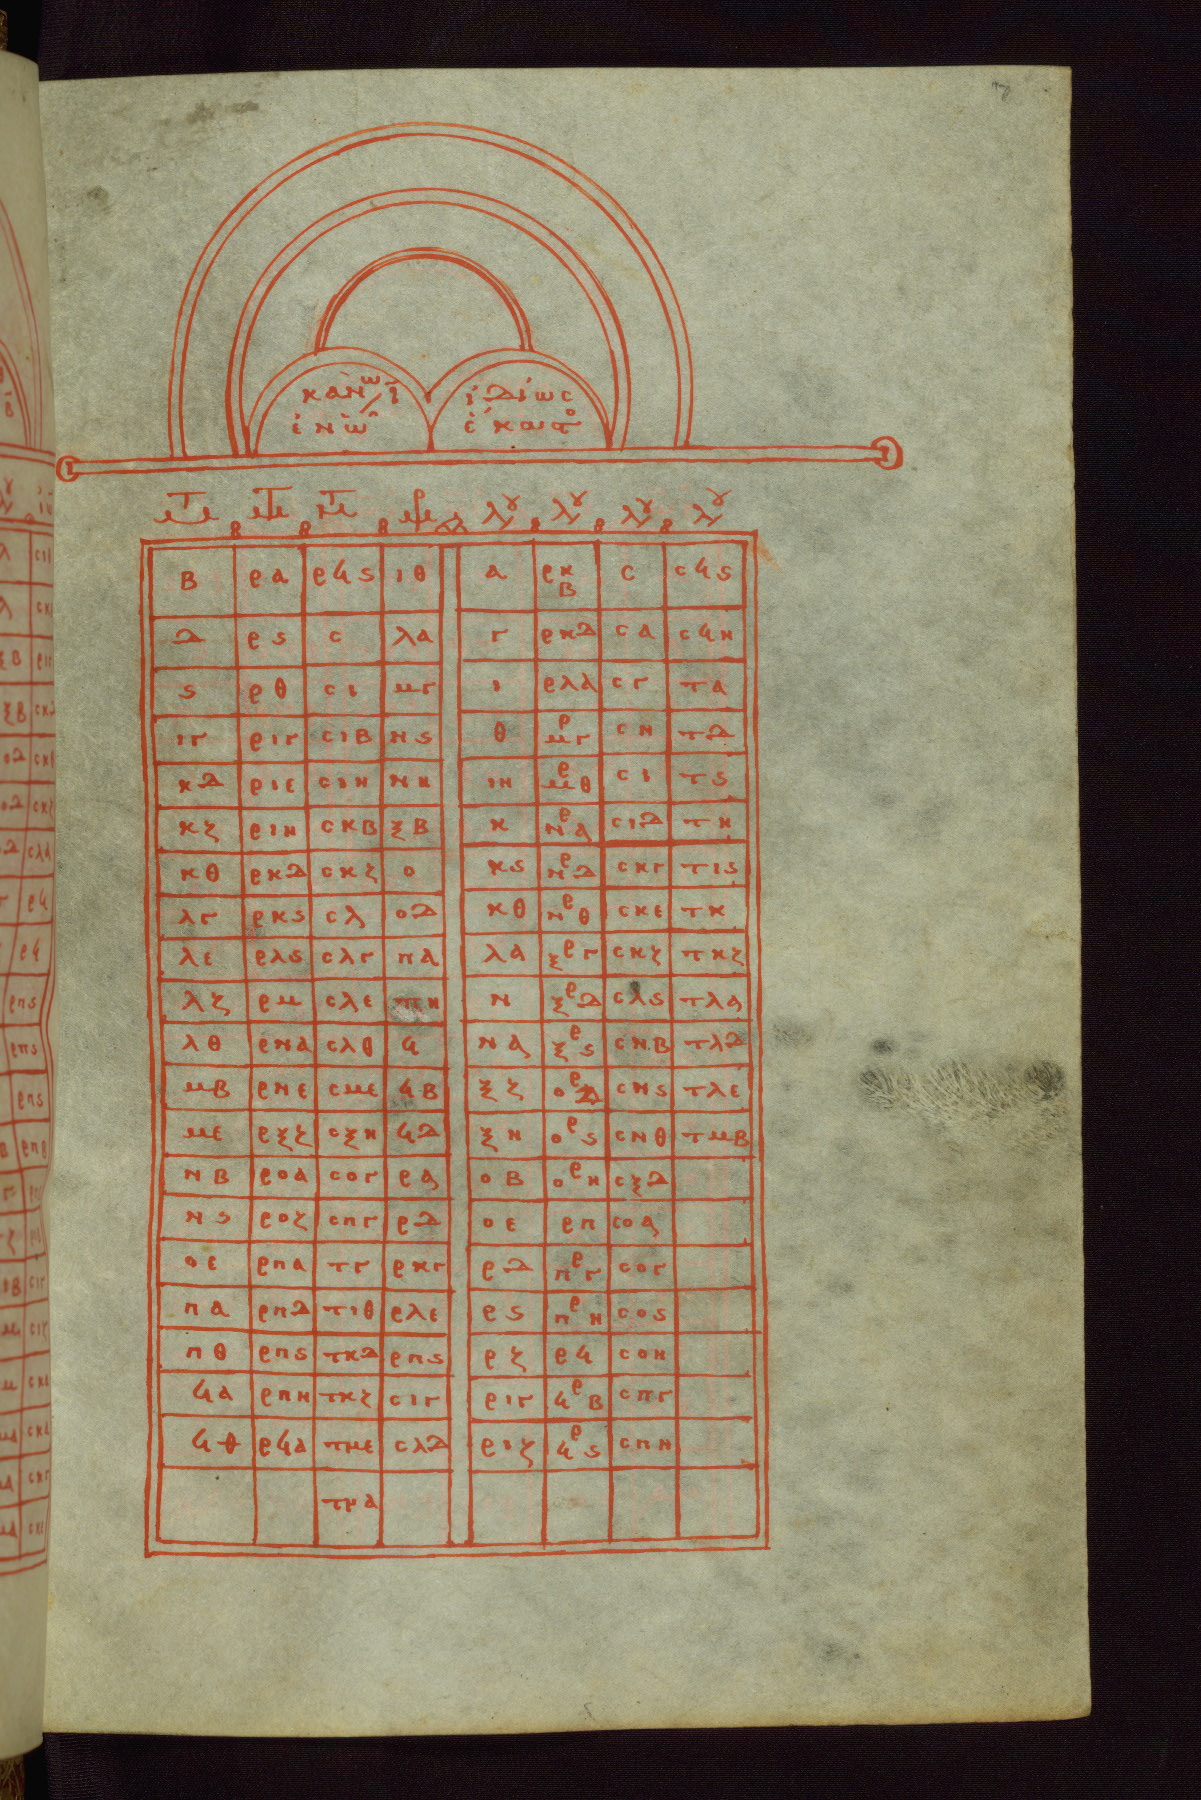 κανω ι ἰδίως
ἐν ὠ ἑκαστο
β ρα ρϟς ιθ α ρκβ ς σϟς
δ ρς ς λα γ ρκδ σα σϟη
ς ρθ σι μγ ι ρλα σγ τα
ιγ ριγ σιβ νς θ ρμγ ση τδ
κδ ριε σιη νη ιη ρμθ σι τς
κζ ριη σκβ ξβ κ ρνα σιδ τη
κθ ρκδ σκζ ο κς ρνδ σκγ τις
λγ ρκς σλ οδ κθ ρνθ σκε τκ
λε ρλς σλγ πα λα ρξγ σκζ τκζ
λζ ρμ σλε πη ν ρξδ σλς τλα
λθ ρνα σλθ ϟ να ρξς σνβ τλδ
μβ ρνε σμε ϟβ ξζ ροδ σνς τλε
με ρξζ σξη ϟδ ξη ρος σνθ τμβ
νβ ροα σογ ρα οβ ροη σξδ
νς ροζ σπγ ρδ οε ρπ σοα
οε ρπα τγ ρκγ ρδ ρπγ σογ
πα ρπδ τιθ ρλε ρς ρπη σος
πθ ρπς τκδ ρπς ρζ ρϟ σοη
ϟα ρπη τκζ σιγ ριγ ρϟβ σπγ
ϟθ ρϟα τμε σλδ ριζ ρϟς σπη